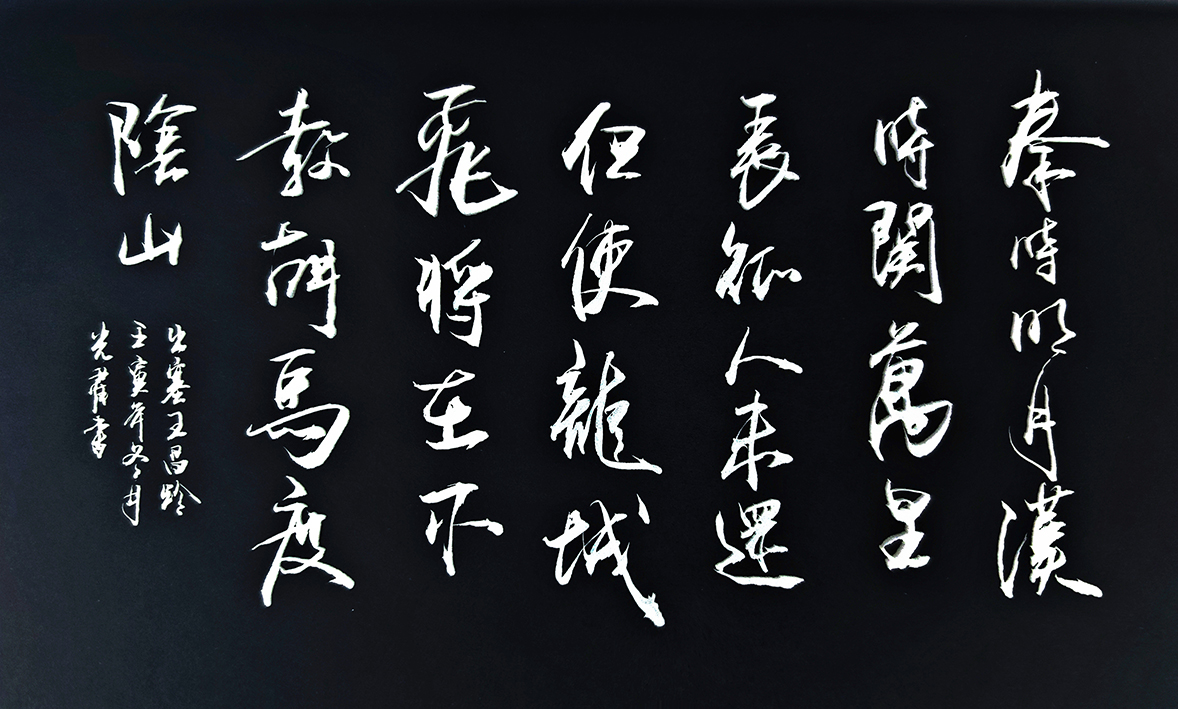 秦時明月漢
時關萬里
長征人未還
但使龍城
飛將在不
教胡馬度
陰山
出塞王昌齡
壬寅年冬月
光書